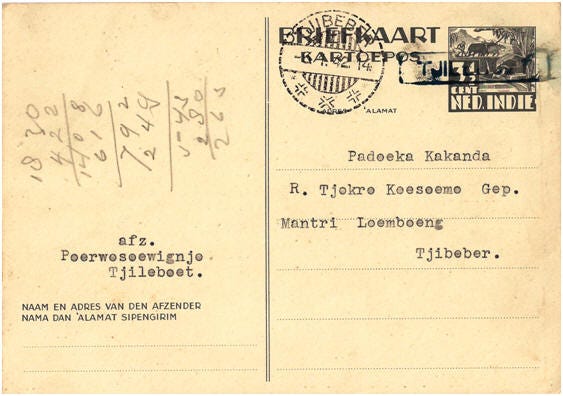 BRIEFKAART
KARTOEPOS
TJIBEBER
ADRES 'ALAMAT
CENT
NED. INDIE
Padoeka Kakanda
R. Tjokro Koesoemo Gep.
Mantri Loemboeng
Tjibeber.
afz.
Poerwosoewignjo
Tjileboet.
NAAM EN ADRES VAN DEN AFZENDER
NAMA DAN 'ALAMAT SIPENGIRIM